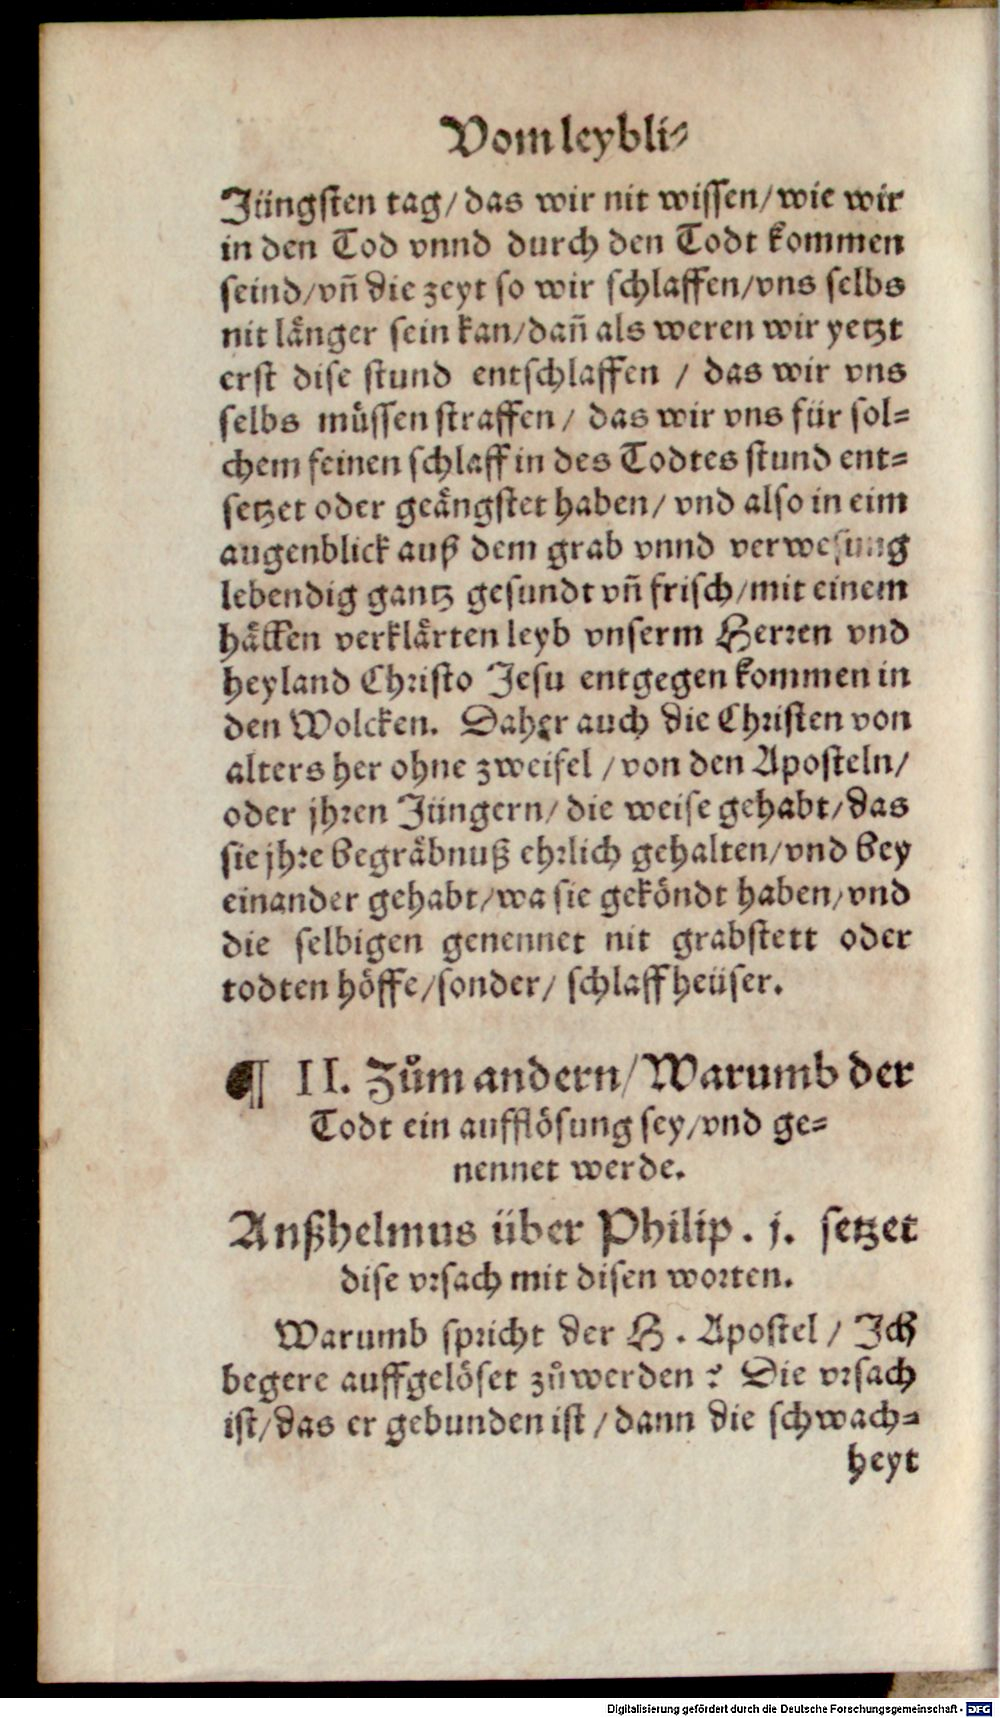 Vom leybli-
Jüngsten tag/das wir nit wissen/wie wir
in den Tod vnnd durch den Todt kommen
seind/vñ die zeyt so wir schlaffen/vns selbs
nit länger sein kan/dañ als weren wir yetzt
erst dise stund entschlaffen / das wir vns
selbs müssen straffen / das wir vns für sol=
chem feinen schlaff in des Todtes stund ent=
setzet oder geängstet haben/ vnd also in eim
augenblick auß dem grab vnnd verwesung
lebendig gantz gesundt vñ frisch/mit einem
hällen verklärten leyb vnserm Herren vnd
heyland Christo Jesu entgegen kommen in
den Wolcken. Daher auch die Christen von
alters her ohne zweifel / von den Aposteln/
oder jhren Jüngern/ die weise gehabt/das
sie jhre begräbnuß ehrlich gehalten/vnd bey
einander gehabt/wa sie geköndt haben/vnd
die selbigen genennet nit grabstett oder
todten höffe/sonder/ schlaffheüser.
¶ II. Zům andern/Warumb der
Todt ein aufflösung sey/vnd ge=
nennet werde.
Anßhelmus über Philip. j. setzet
dise vrsach mit disen worten.
Warumb spricht der H. Apostel / Ich
begere auffgelöset zů werden? Die vrsach
ist/das er gebunden ist / dann die schwach=
heyt
Digitalisierung gefördert durch die Deutsche Forschungsgemeinschaft - DFG